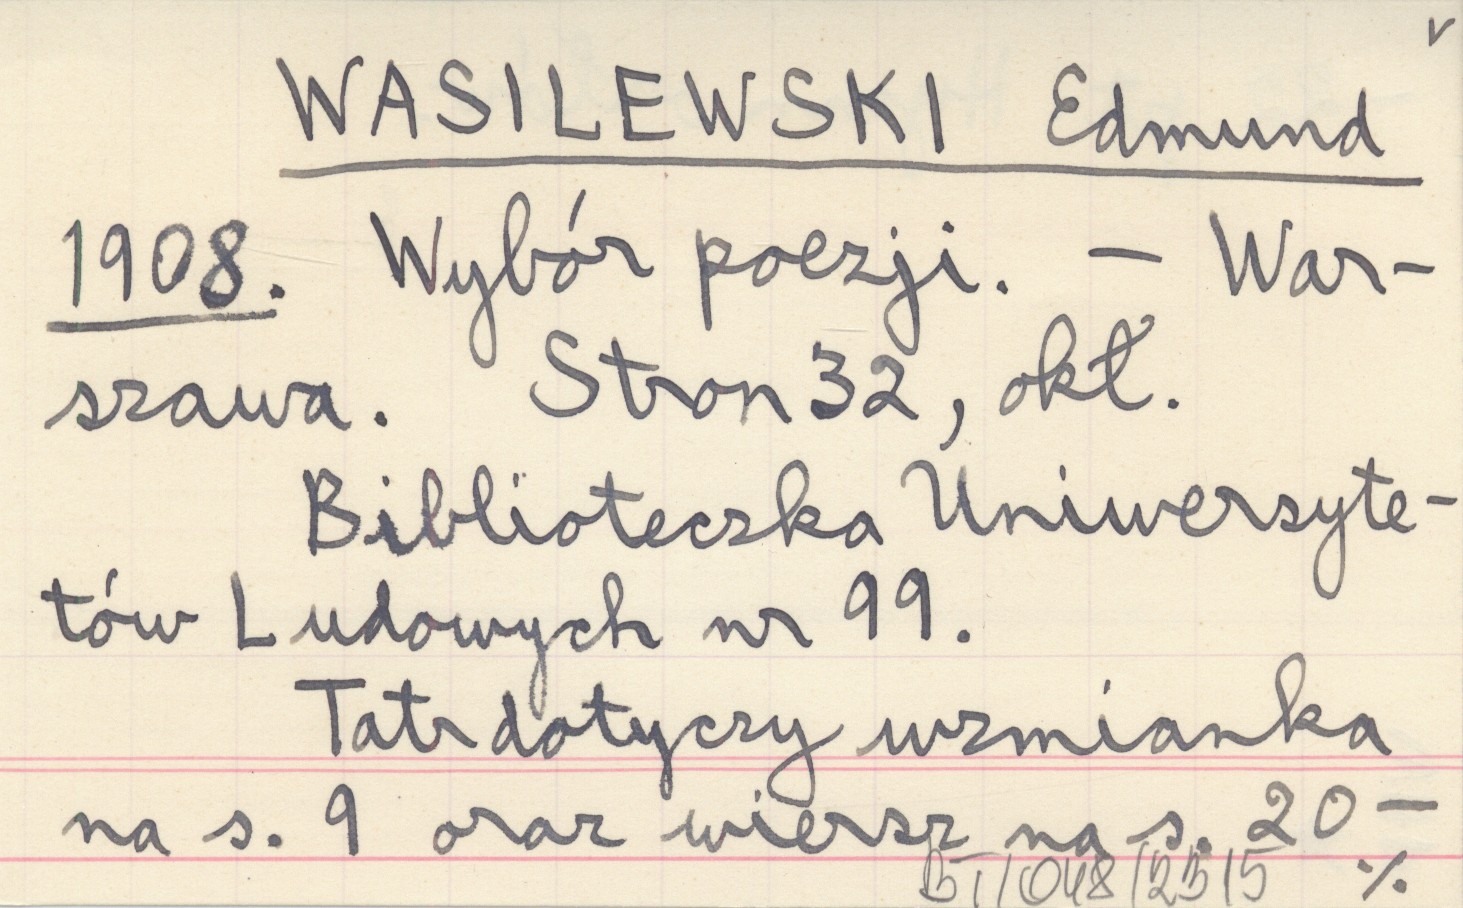 v
WASILEWSKI Edmund
1908. Wybór poezji. – War-
szawa. Stron 32, okł.
Biblioteczka Uniwersyte-
tów Ludowych nr 99.
Tatr dotyczy wzmianka
na s. 9 oraz wiersz na s. 20–
BT/048/23/5 ./.